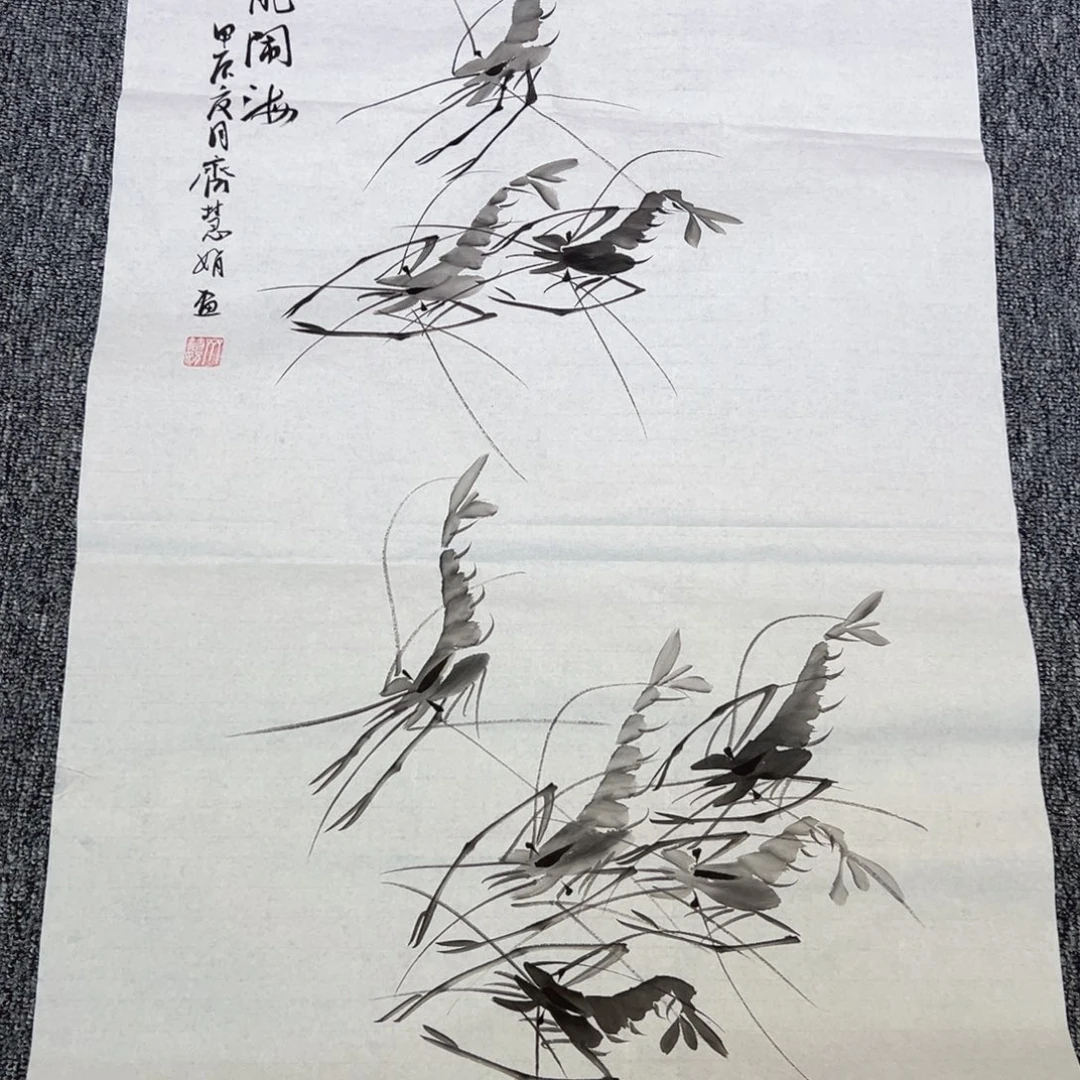 闹海
甲辰夏月齊慧娟画